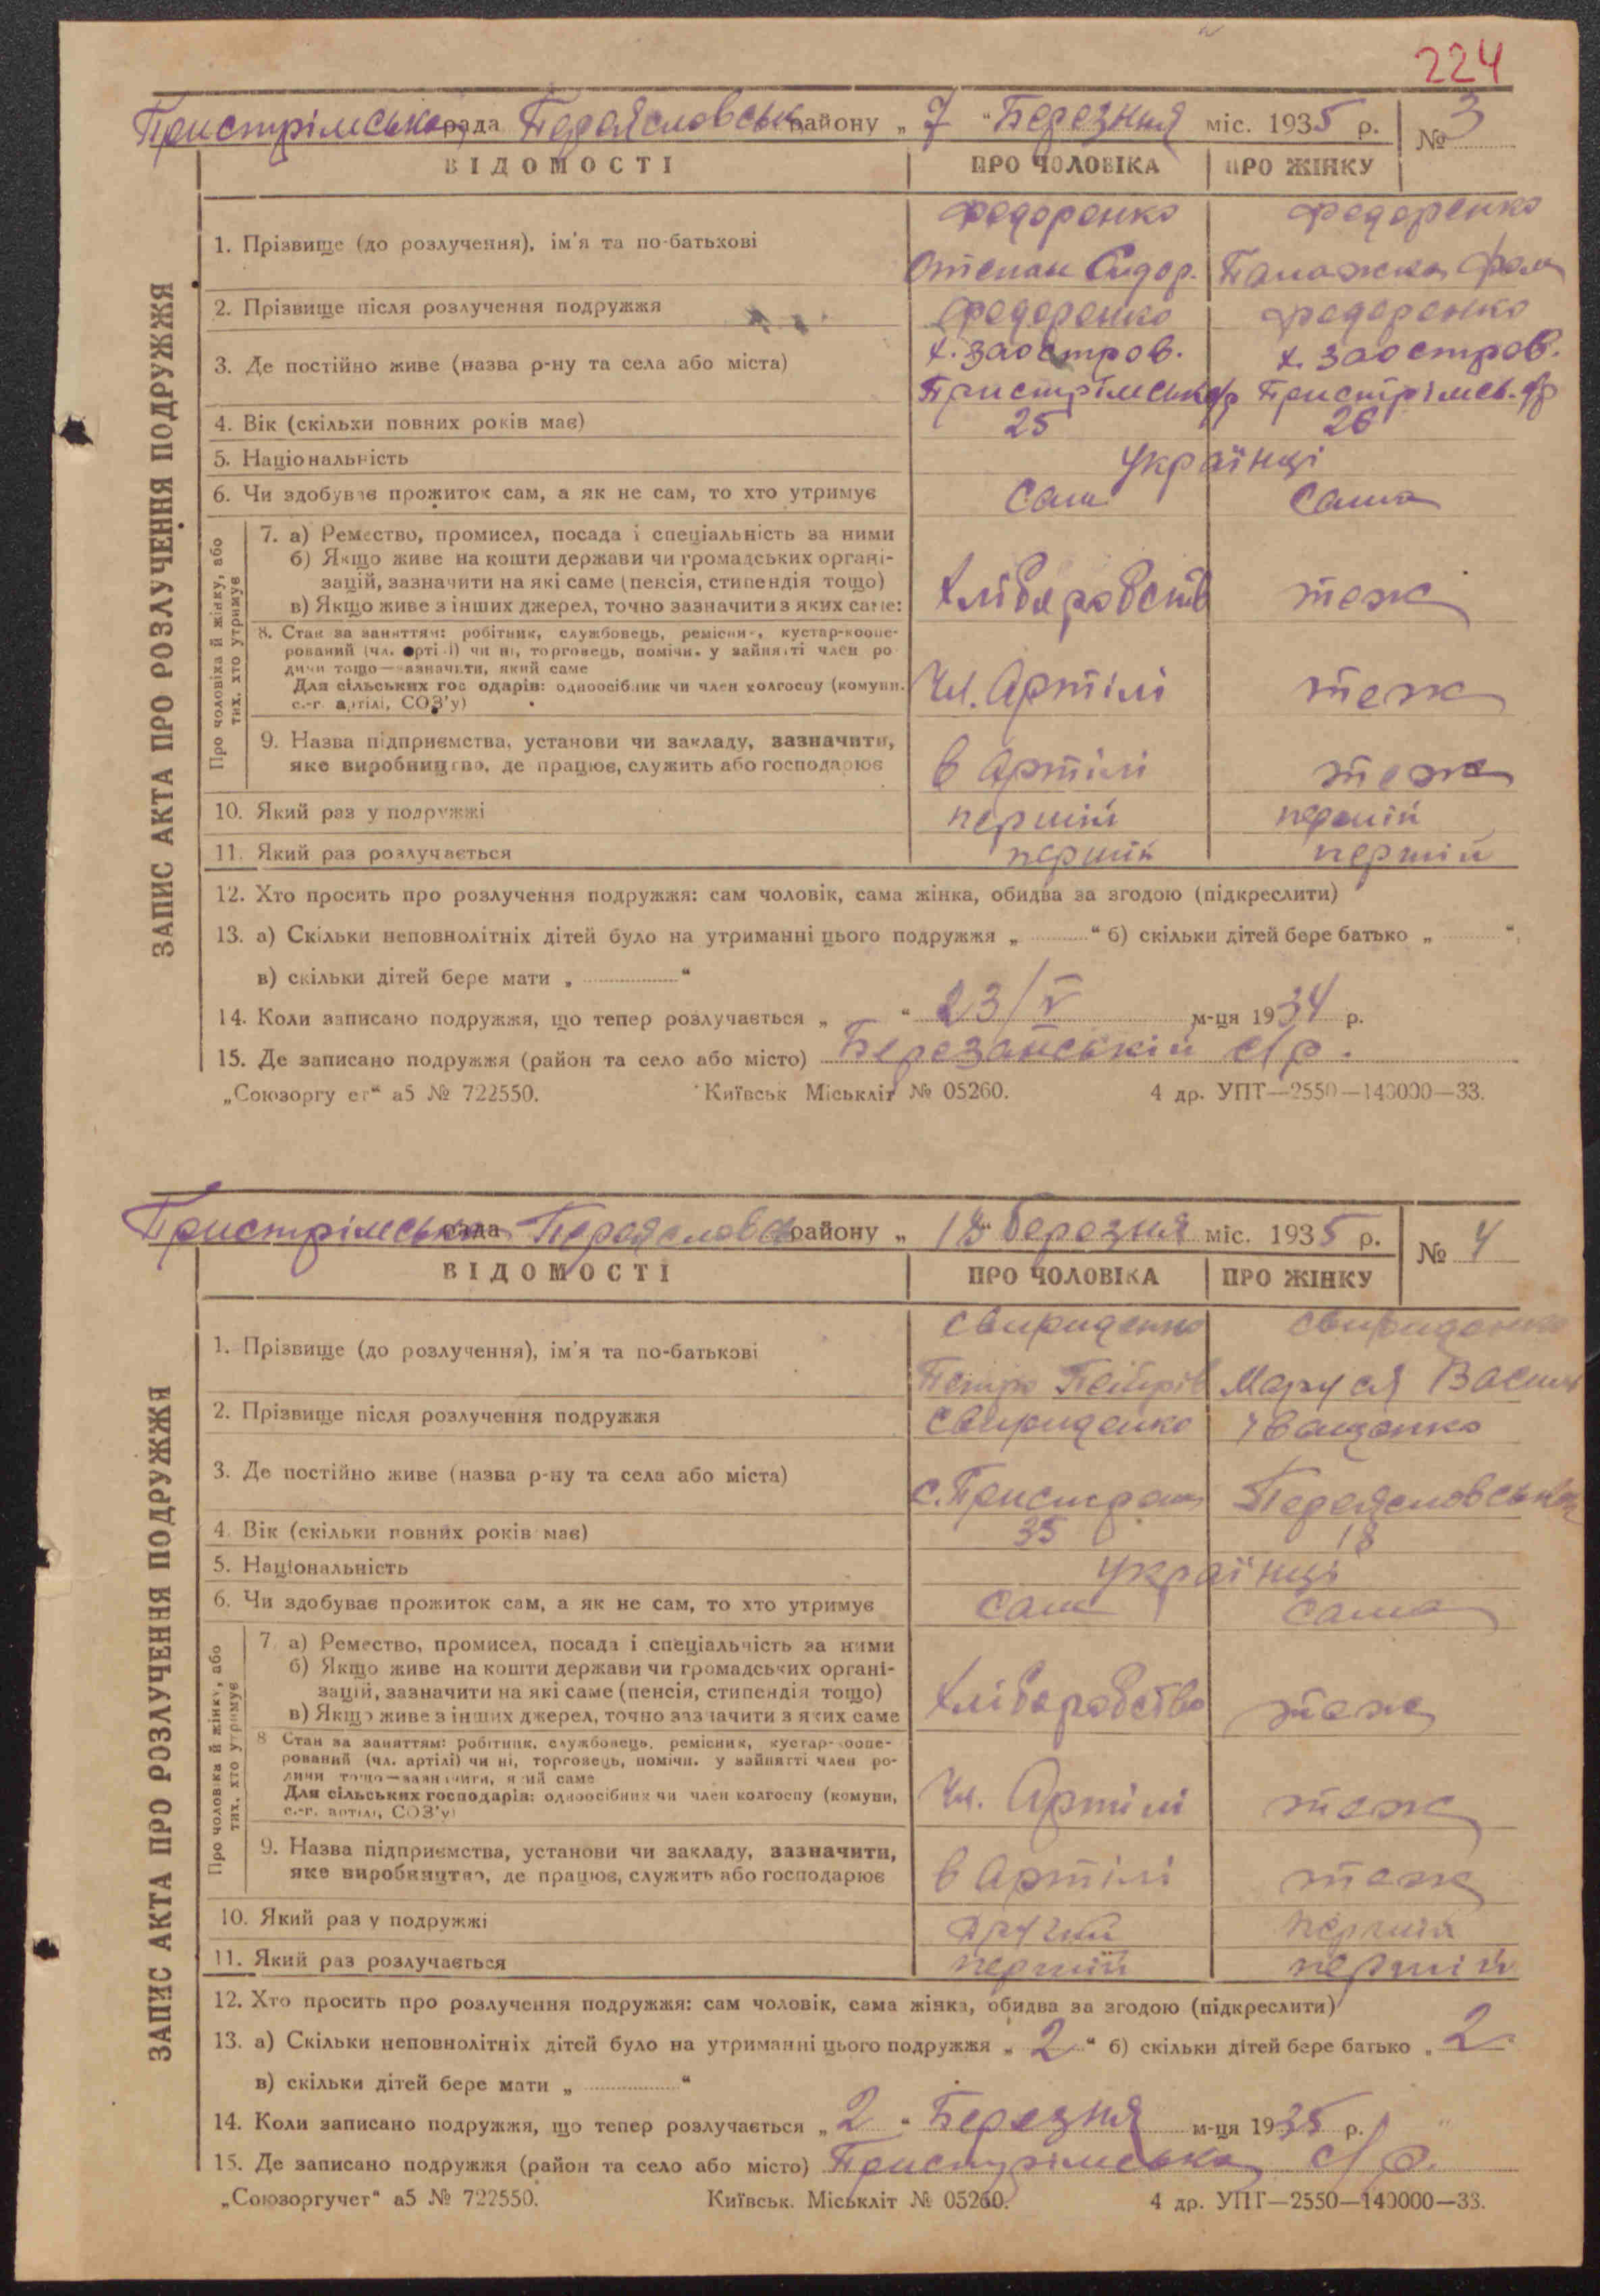 224
Пристрімська рада Переясловськ району „ 7 “ Березння міс. 1935 р. № 3
ВІДОМОСТІ ПРО ЧОЛОВІКА ПРО ЖІНКУ
ЗАПИС АКТА ПРО РОЗЛУЧЕННЯ ПОДРУЖЖЯ
Федоренко Федоренко
1. Прізвище (до розлучення), ім'я та по-батькові
Степан Сидор.
2. Прізвище після розлучення подружжя Федоренко Федоренко
х. Заостров. х. Заостров.
3. Де постійно живе (назва р-ну та села або міста)
Пристрімськ с/р Пристрімсь. с/р
4. Вік (скільки повних років має) 25 26
5. Національність Українці
6. Чи здобуває прожиток сам, а як не сам, то хто утримує Сам Сама
Про чоловіка й жінку, або
тих, хто утримує
7. а) Ремество, промисел, посада і спеціальність за ними
б) Якщо живе на кошти держави чи громадських органі-
зацій, зазначити на які саме (пенсія, стипендія тощо)
в) Якщо живе з інших джерел, точно зазначити з яких саме:
Хліборобств теж
8. Стан за заняттям: робітник, службовець, ремісник, кустар-коопе-
рований (чл. артілі) чи ні, торговець, помічн. у зайнятті член ро
дичи тощо—зазначити, який саме
Для сільських господарів: одноосібник чи член колгоспу (комуни.
с.-г. артілі, СОЗ'у)
Чл. Артілі теж
9. Назва підприємства, установи чи закладу, зазначити,
яке виробництво, де працює, служить або господарює
в Артілі теж
10. Який раз у подружжі першій першій
11. Який раз розлучається першій першій
12. Хто просить про розлучення подружжя: сам чоловік, сама жінка, обидва за згодою (підкреслити)
13. а) Скільки неповнолітніх дітей було на утриманні цього подружжя „ “ б) скільки дітей бере батько „ “;
в) скільки дітей бере мати „ “
14. Коли записано подружжя, що тепер розлучається „ “ 23/V м-ця 1934 р.
15. Де записано подружжя (район та село або місто) Березанській с/р.
„Союзоргучет“ а5 № 722550. Київськ Міськліт № 05260. 4 др. УПТ—2550—140000—33.
Пристрімська рада Переясловськ району „ 18 “ Березня міс. 1935 р. № 4
ВІДОМОСТІ ПРО ЧОЛОВІКА ПРО ЖІНКУ
ЗАПИС АКТА ПРО РОЗЛУЧЕННЯ ПОДРУЖЖЯ
Свириденко Свириденко
1. Прізвище (до розлучення), ім'я та по-батькові
Петро Петрів Маруся Васил
2. Прізвище після розлучення подружжя Свириденко Іващенко
3. Де постійно живе (назва р-ну та села або міста)
с. Пристроми Переясловська
4. Вік (скільки повних років має) 35 18
5. Національність Українці
6. Чи здобуває прожиток сам, а як не сам, то хто утримує Сам Сама
Про чоловіка й жінку, або
тих, хто утримує
7. а) Ремество, промисел, посада і спеціальність за ними
б) Якщо живе на кошти держави чи громадських органі-
зацій, зазначити на які саме (пенсія, стипендія тощо)
в) Якщо живе з інших джерел, точно зазначити з яких саме
Хліборобство теж
8 Стан за заняттям: робітник, службовець, ремісник, кустар-коопе-
рований (чл. артілі) чи ні, торговець, помічн. у зайнятті член ро-
дичи тощо—зазначити, який саме
Для сільських господарів: одноосібник чи член колгоспу (комуни,
с.-г. артілі, СОЗ'у)
Чл. Артілі теж
9. Назва підприємства, установи чи закладу, зазначити,
яке виробництво, де працює, служить або господарює
в Артілі теж
10. Який раз у подружжі другий першій
11. Який раз розлучається першій першій
12. Хто просить про розлучення подружжя: сам чоловік, сама жінка, обидва за згодою (підкреслити)
13. а) Скільки неповнолітніх дітей було на утриманні цього подружжя „ 2 “ б) скільки дітей бере батько „ 2
в) скільки дітей бере мати „ “
14. Коли записано подружжя, що тепер розлучається „ 2 “ Березня м-ця 1935 р.
15. Де записано подружжя (район та село або місто) Пристрімська с/р.
„Союзоргучет“ а5 № 722550. Київськ. Міськліт № 05260. 4 др. УПТ—2550—140000—33.